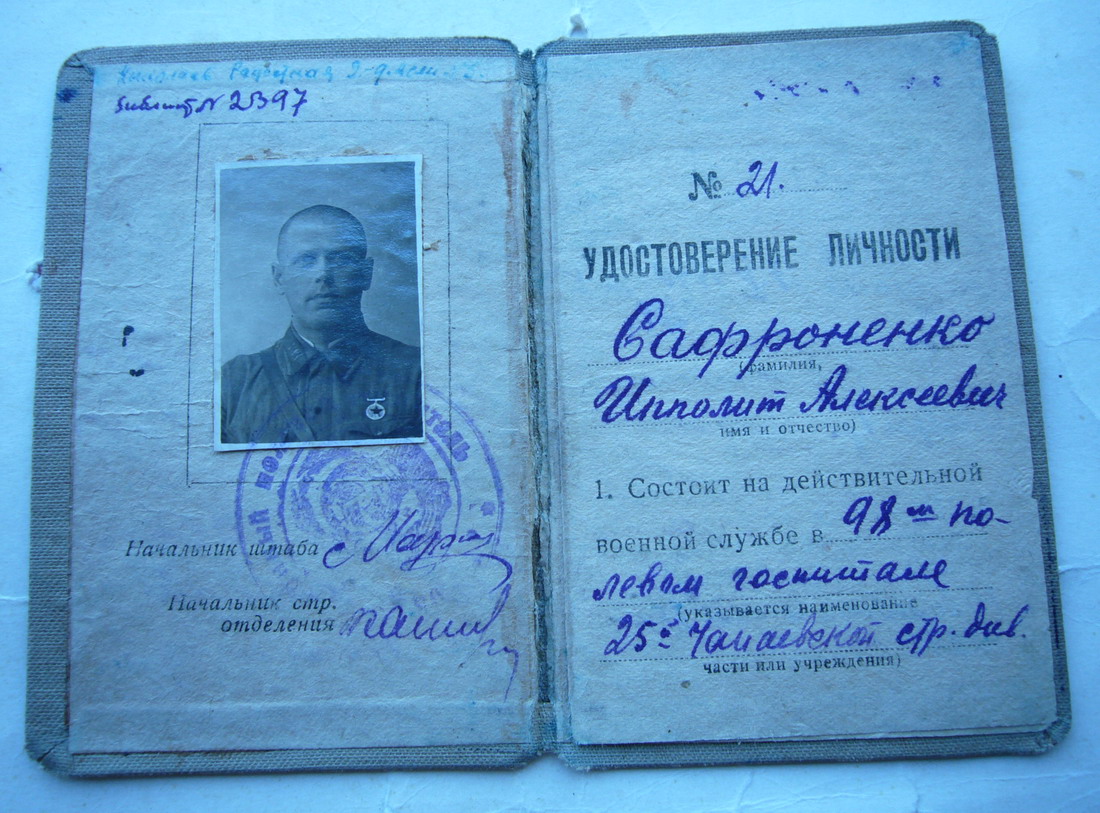 библиот N 2397
Начальник штаба
Начальник стр.
отделения
№ 21.
УДОСТОВЕРЕНИЕ ЛИЧНОСТИ
Сафроненко
(фамилия,
Ипполит Алексеевич
имя и отчество)
1. Состоит на действительной
военной службе в 98 м по-
левом госпитале
(указывается наименование
25й Чапаевской стр. див.
части или учреждения)